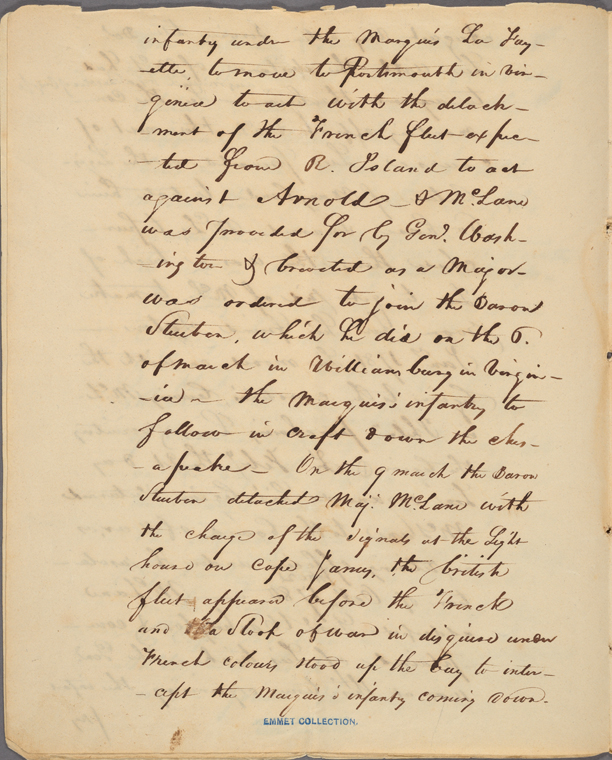 infantry under the Marquis La Fay-
-ette, to move to Portsmouth in vir-
ginia to act with the detach-
ment of the French fleet expec-
ted from R. Island to act
against Arnold - & McLane
was provided for by Genl. Wash-
-ington & breveted as a Major
was ordered to join the Baron
Steuben, which he did on the 6.
of march in Williamsburg in Virgin-
-ia - the Marquis's infantry to
follow in craft down the ches-
-apeake - On the 9 march the Baron
Steuben detached Maj. McLane with
the charge of the signals at the Light
house on cape James, the british
fleet appeared before the French
and a Sloop of war in disguise under
French colours stood up the bay to inter-
-cept the Marquis's infantry coming down.
EMMET COLLECTION.